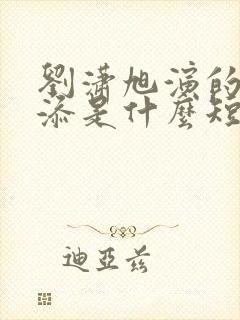 劉瀟旭演的
添是什麼短
迪亞茲